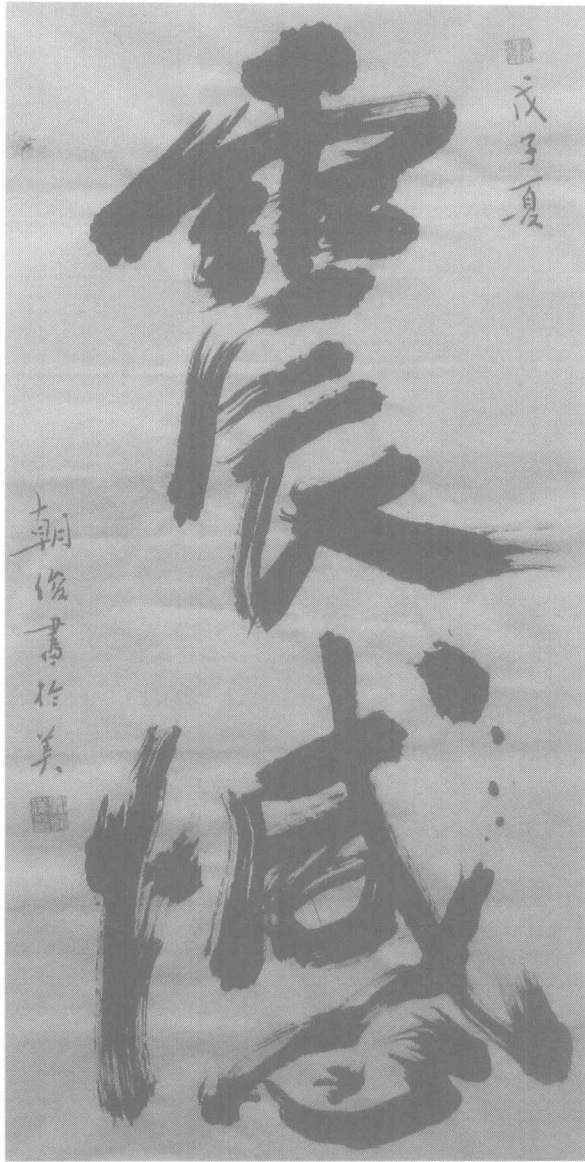 戊子夏
震憾
朝俊書於美